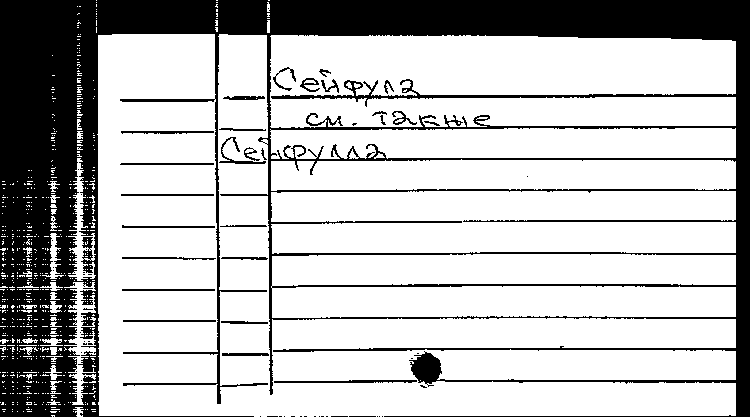 Сейфула
см. также
Сейфулла